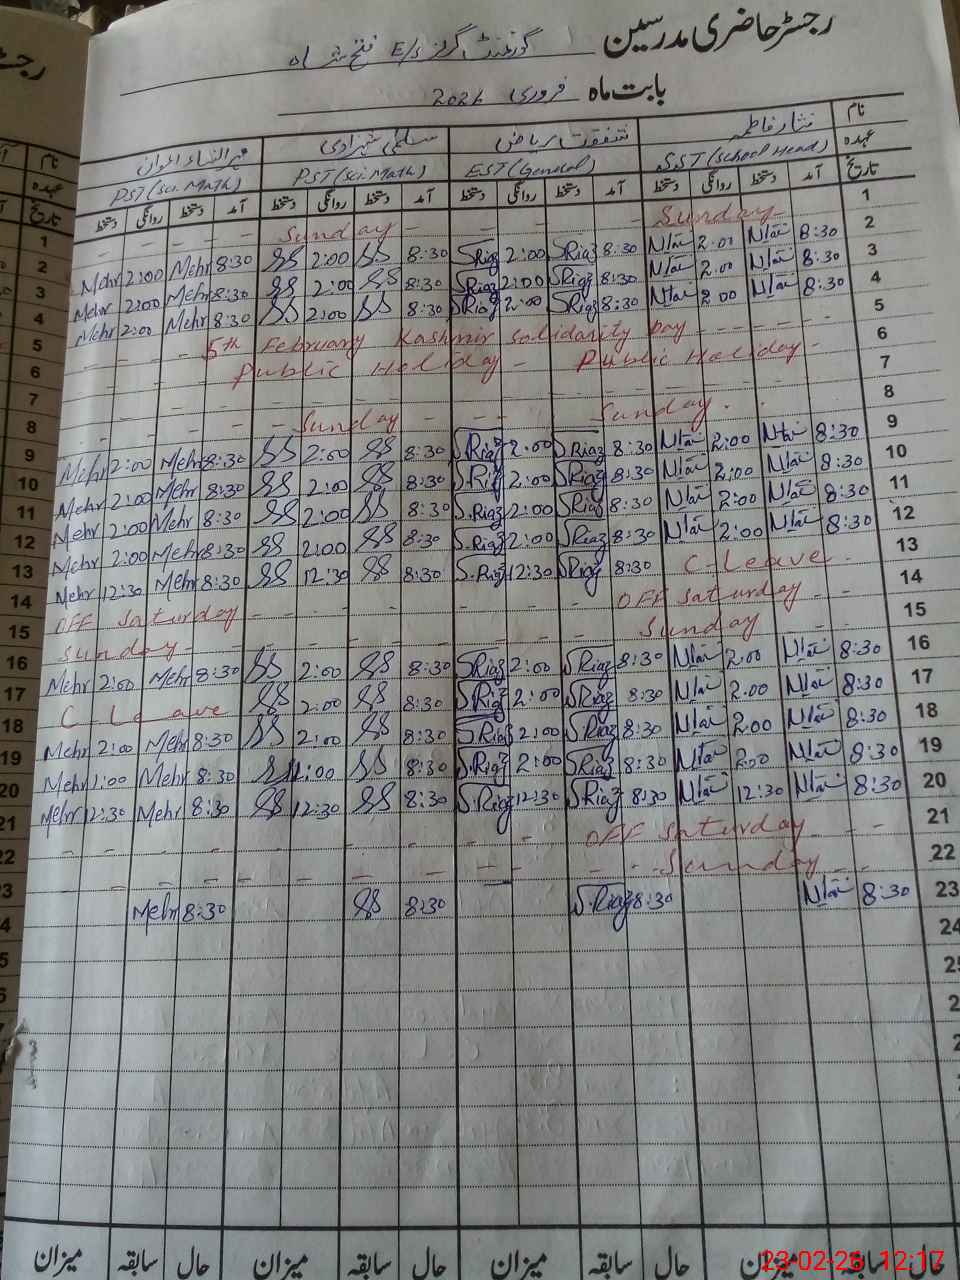 رجسٹر حاضری مدرسین گورنمنٹ گرلز E/S فتح شاہ
بابت ماہ فروری 2026
نام نثار فاطمہ شفقت ریاض سلمیٰ شہزادی مہرالنساء اعوان
عہدہ SST (School Head) EST (General) PST (Sci.Math) PST (Sci.Math)
تاریخ آمد دستخط روانگی دستخط آمد دستخط روانگی دستخط آمد دستخط روانگی دستخط آمد دستخط روانگی دستخط
1 Sunday - - - - Sunday - - - 1
2 Mehr 2:00 Mehr 8:30 SS 2:00 SS 8:30 SRiaz 2:00 SRiaz 8:30 2:00 8:30 2
3 Mehr 2:00 Mehr 8:30 SS 2:00 SS 8:30 SRiaz 2:00 SRiaz 8:30 2:00 8:30 3
4 Mehr 2:00 Mehr 8:30 SS 2:00 SS 8:30 SRiaz 2:00 SRiaz 8:30 2:00 8:30 4
5 - - 5th February Kashmir Solidarity Day - - - - - 5
6 - - - Public Holiday - Public Holiday - 6
7 - - - - 7
8 - - - Sunday - - Sunday 8
9 Mehr 2:00 Mehr 8:30 SS 2:00 SS 8:30 SRiaz 2:00 SRiaz 8:30 2:00 8:30 9
10 Mehr 2:00 Mehr 8:30 SS 2:00 SS 8:30 S.Riaz 2:00 SRiaz 8:30 2:00 8:30 10
11 Mehr 2:00 Mehr 8:30 SS 2:00 SS 8:30 S.Riaz 2:00 SRiaz 8:30 2:00 8:30 11
12 Mehr 2:00 Mehr 8:30 SS 2:00 SS 8:30 S.Riaz 2:00 SRiaz 8:30 2:00 8:30 12
13 Mehr 12:30 Mehr 8:30 SS 12:30 SS 8:30 S.Riaz 12:30 SRiaz 8:30 C-Leave 13
14 OFF Saturday - - - - - - - OFF Saturday - 14
15 Sunday - - - - - - - Sunday 15
16 Mehr 2:00 Mehr 8:30 SS 2:00 SS 8:30 SRiaz 2:00 SRiaz 8:30 2:00 8:30 16
17 C-Leave SS 2:00 SS 8:30 S.Riaz 2:00 SRiaz 8:30 2:00 8:30 17
18 Mehr 2:00 Mehr 8:30 SS 2:00 SS 8:30 SRiaz 2:00 SRiaz 8:30 2:00 8:30 18
19 Mehr 1:00 Mehr 8:30 SS 1:00 SS 8:30 S.Riaz 2:00 SRiaz 8:30 2:00 8:30 19
20 Mehr 12:30 Mehr 8:30 SS 12:30 SS 8:30 S.Riaz 12:30 SRiaz 8:30 12:30 8:30 20
21 - - - - - - - - OFF Saturday - - 21
22 - - - - - - - - Sunday - - 22
23 Mehr 8:30 SS 8:30 S.Riaz 8:30 8:30 23
24
حال سابقہ میزان حال سابقہ میزان حال سابقہ میزان حال سابقہ میزان
23-02-26 12:17